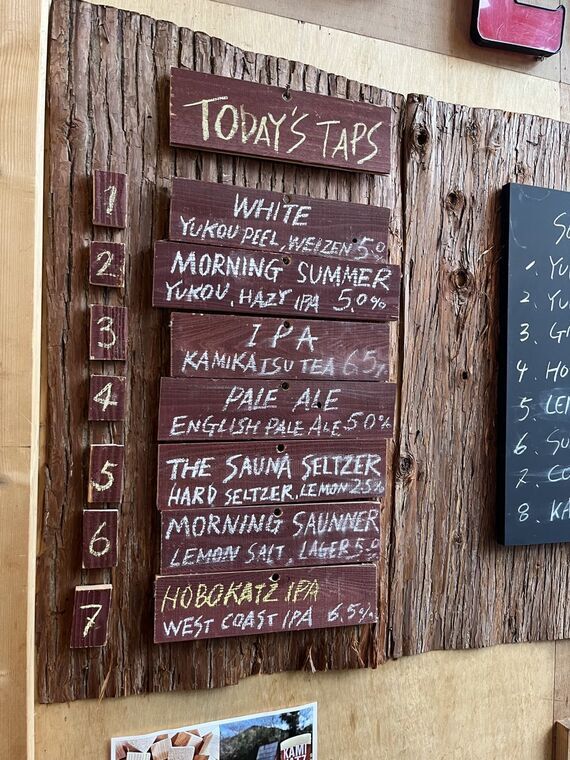 TODAY'S TAPS
1
WHITE
YUKOU PEEL, WEIZEN 5.0
2
MORNING SUMMER
YUKOU, HAZY IPA 5.0%
3
IPA
KAMIKATSU TEA 6.5%
4
PALE ALE
ENGLISH PALE ALE 5.0%
5
THE SAUNA SELTZER
HARD SELTZER, LEMON 2.5%
6
MORNING SAUNNER
LEMON SALT, LAGER 5.0
7
HOBOKATZ IPA
WEST COAST IPA 6.5%
1. YU
2. YU
3. G
4. HO
5. LE
6. SU
7. CO
8. KA
KAMI